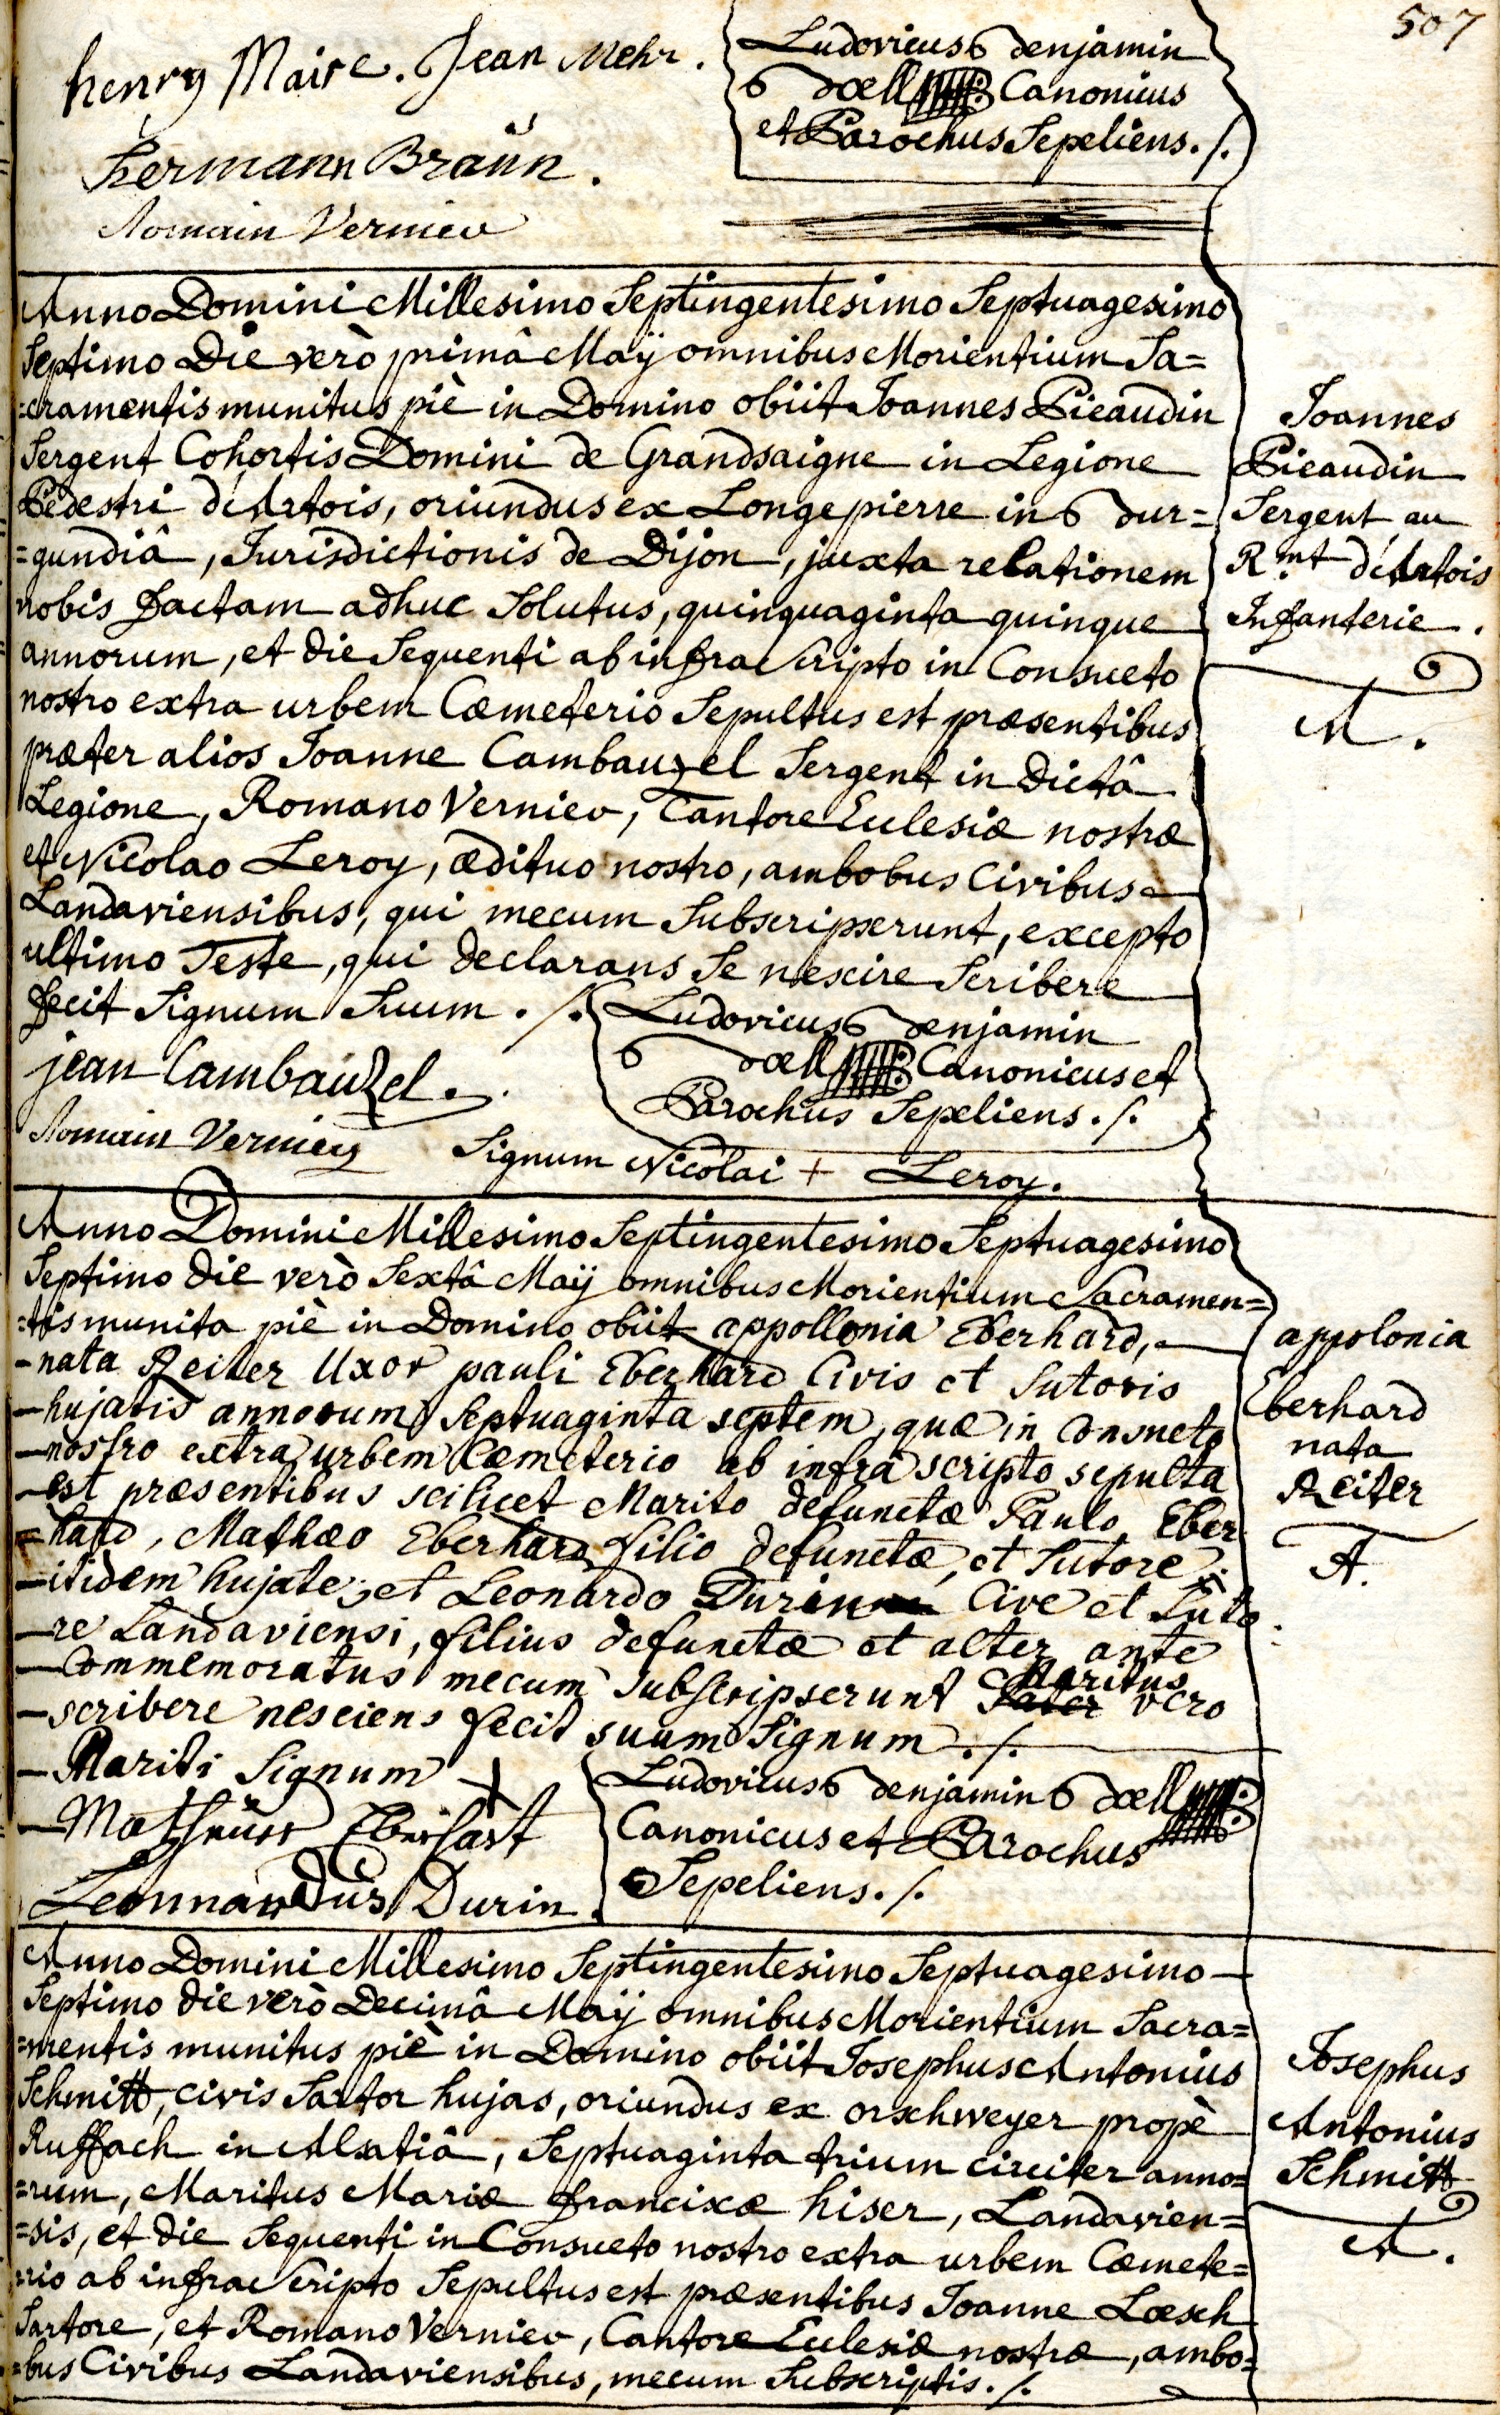 507
henry Maire. Jean Mehr.
Hermann Braün.
Romain Vernier
Ludovicus Benjamin
Boell Canonicus
et Parochus Sepeliens ./.
Anno Domini Millesimo Septingentesimo Septuagesimo
Septimo Die verò primâ Maÿ omnibus Morientium Sa=
=cramentis munitus piè in Domino obiit Joannes Pieaudin
Sergent Cohortis Domini de Grandsaigne in Legione
Pedestri d'Artois, oriundus ex Longepierre in Bur=
=gundiâ, Jurisdictionis de Dijon, juxta relationem
nobis factam adhuc Solutus, quinquaginta quinque
annorum, et die Sequenti ab infra Scripto in Consueto
nostro extra urbem Cœmeterio Sepultus est præsentibus
præter alios Joanne Cambauzel Sergent in Dictâ
Legione, Romano Vernier, Cantore Ecclesiæ nostræ
et Nicolao Leroy, ædituo nostro, ambobus Civibus
Landaviensibus, qui mecum Subscripserunt, excepto
ultimo Teste, qui declarans Se nescire Scribere
fecit Signum Suum ./.
Joannes
Pieaudin
Sergent au
R.mt d'Artois
Infanterie.
A.
Ludovicus Benjamin
Boell Canonicus et
Parochus Sepeliens ./.
jean Cambauzel.
Romain Vernier
Signum Nicolai + Leroy.
Anno Domini Millesimo Septingentesimo Septuagesimo
Septimo die verò Sextâ Maÿ omnibus Morientium Sacramen=
=tis munita piè in Domino obiit appollonia Eberhard,
-nata Reiter Uxor pauli Eberhard Civis et Sutoris
-hujatis annorum Septuaginta septem, quæ in Consueto
-nostro extra urbem Cœmeterio ab infra scripto sepulta
-est præsentibus scilicet Marito defunctæ Paulo Eber
=hard, Mathæo Eberhard filio defunctæ, et Sutore
-itidem hujate, et Leonardo Durin Cive et Suto
-re Landaviensi, filius defunctæ et alter ante
-Commemoratus mecum Subscripserunt Pater Maritus vero
-scribere nesciens fecit suum Signum ./.
appolonia
Eberhard
nata
Reiter
A.
-Mariti Signum +
-Mathäus Eberhart
Leonnardus Durin.
Ludovicus Benjamin Boell
Canonicus et Parochus
Sepeliens ./.
Anno Domini Millesimo Septingentesimo Septuagesimo
Septimo die verò Decimâ Maÿ omnibus Morientium Sacra=
=mentis munitus piè in Domino obiit Josephus Antonius
Schmitt, civis Sartor hujas, oriundus ex orschweyer propè
Ruffach in Alsatiâ, Septuaginta trium circiter anno=
=rum, Maritus Mariæ franciscæ hiser, Landavien=
=sis, et die Sequenti in Consueto nostro extra urbem Cœmete=
=rio ab infra Scripto Sepultus est præsentibus Joanne Lœsch
Sartore, et Romano Vernier, Cantore Ecclesiæ nostræ, ambo=
=bus Civibus Landaviensibus, mecum Subscriptis ./.
Josephus
Antonius
Schmitt
A.